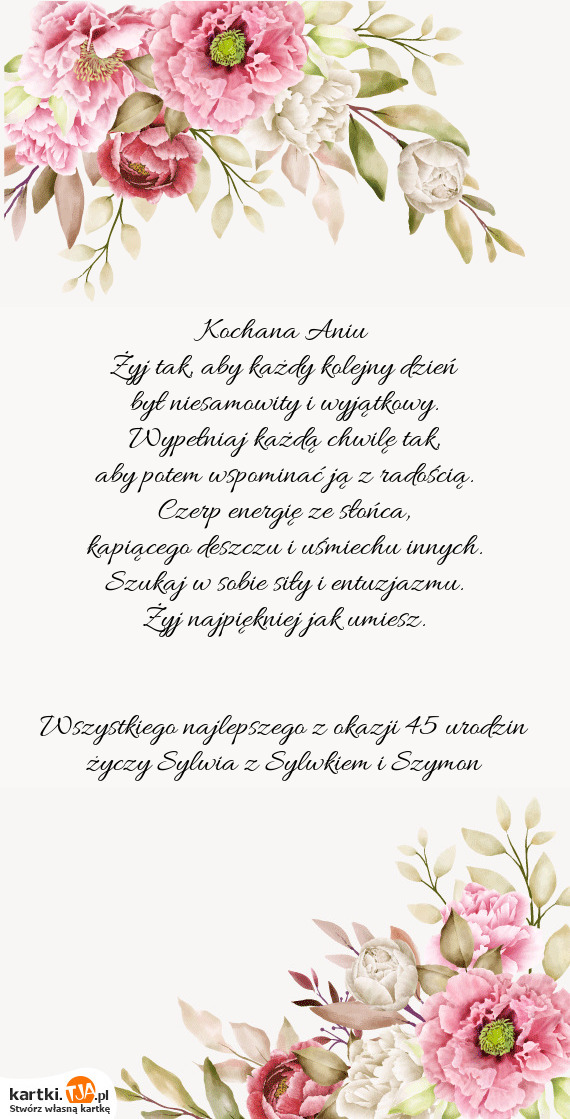 Kochana Aniu
Żyj tak, aby każdy kolejny dzień
był niesamowity i wyjątkowy.
Wypełniaj każdą chwilę tak,
aby potem wspominać ją z radością.
Czerp energię ze słońca,
kapiącego deszczu i uśmiechu innych.
Szukaj w sobie siły i entuzjazmu.
Żyj najpiękniej jak umiesz.
Wszystkiego najlepszego z okazji 45 urodzin
życzy Sylwia z Sylwkiem i Szymon
kartki.TJA.pl
Stwórz własną kartkę